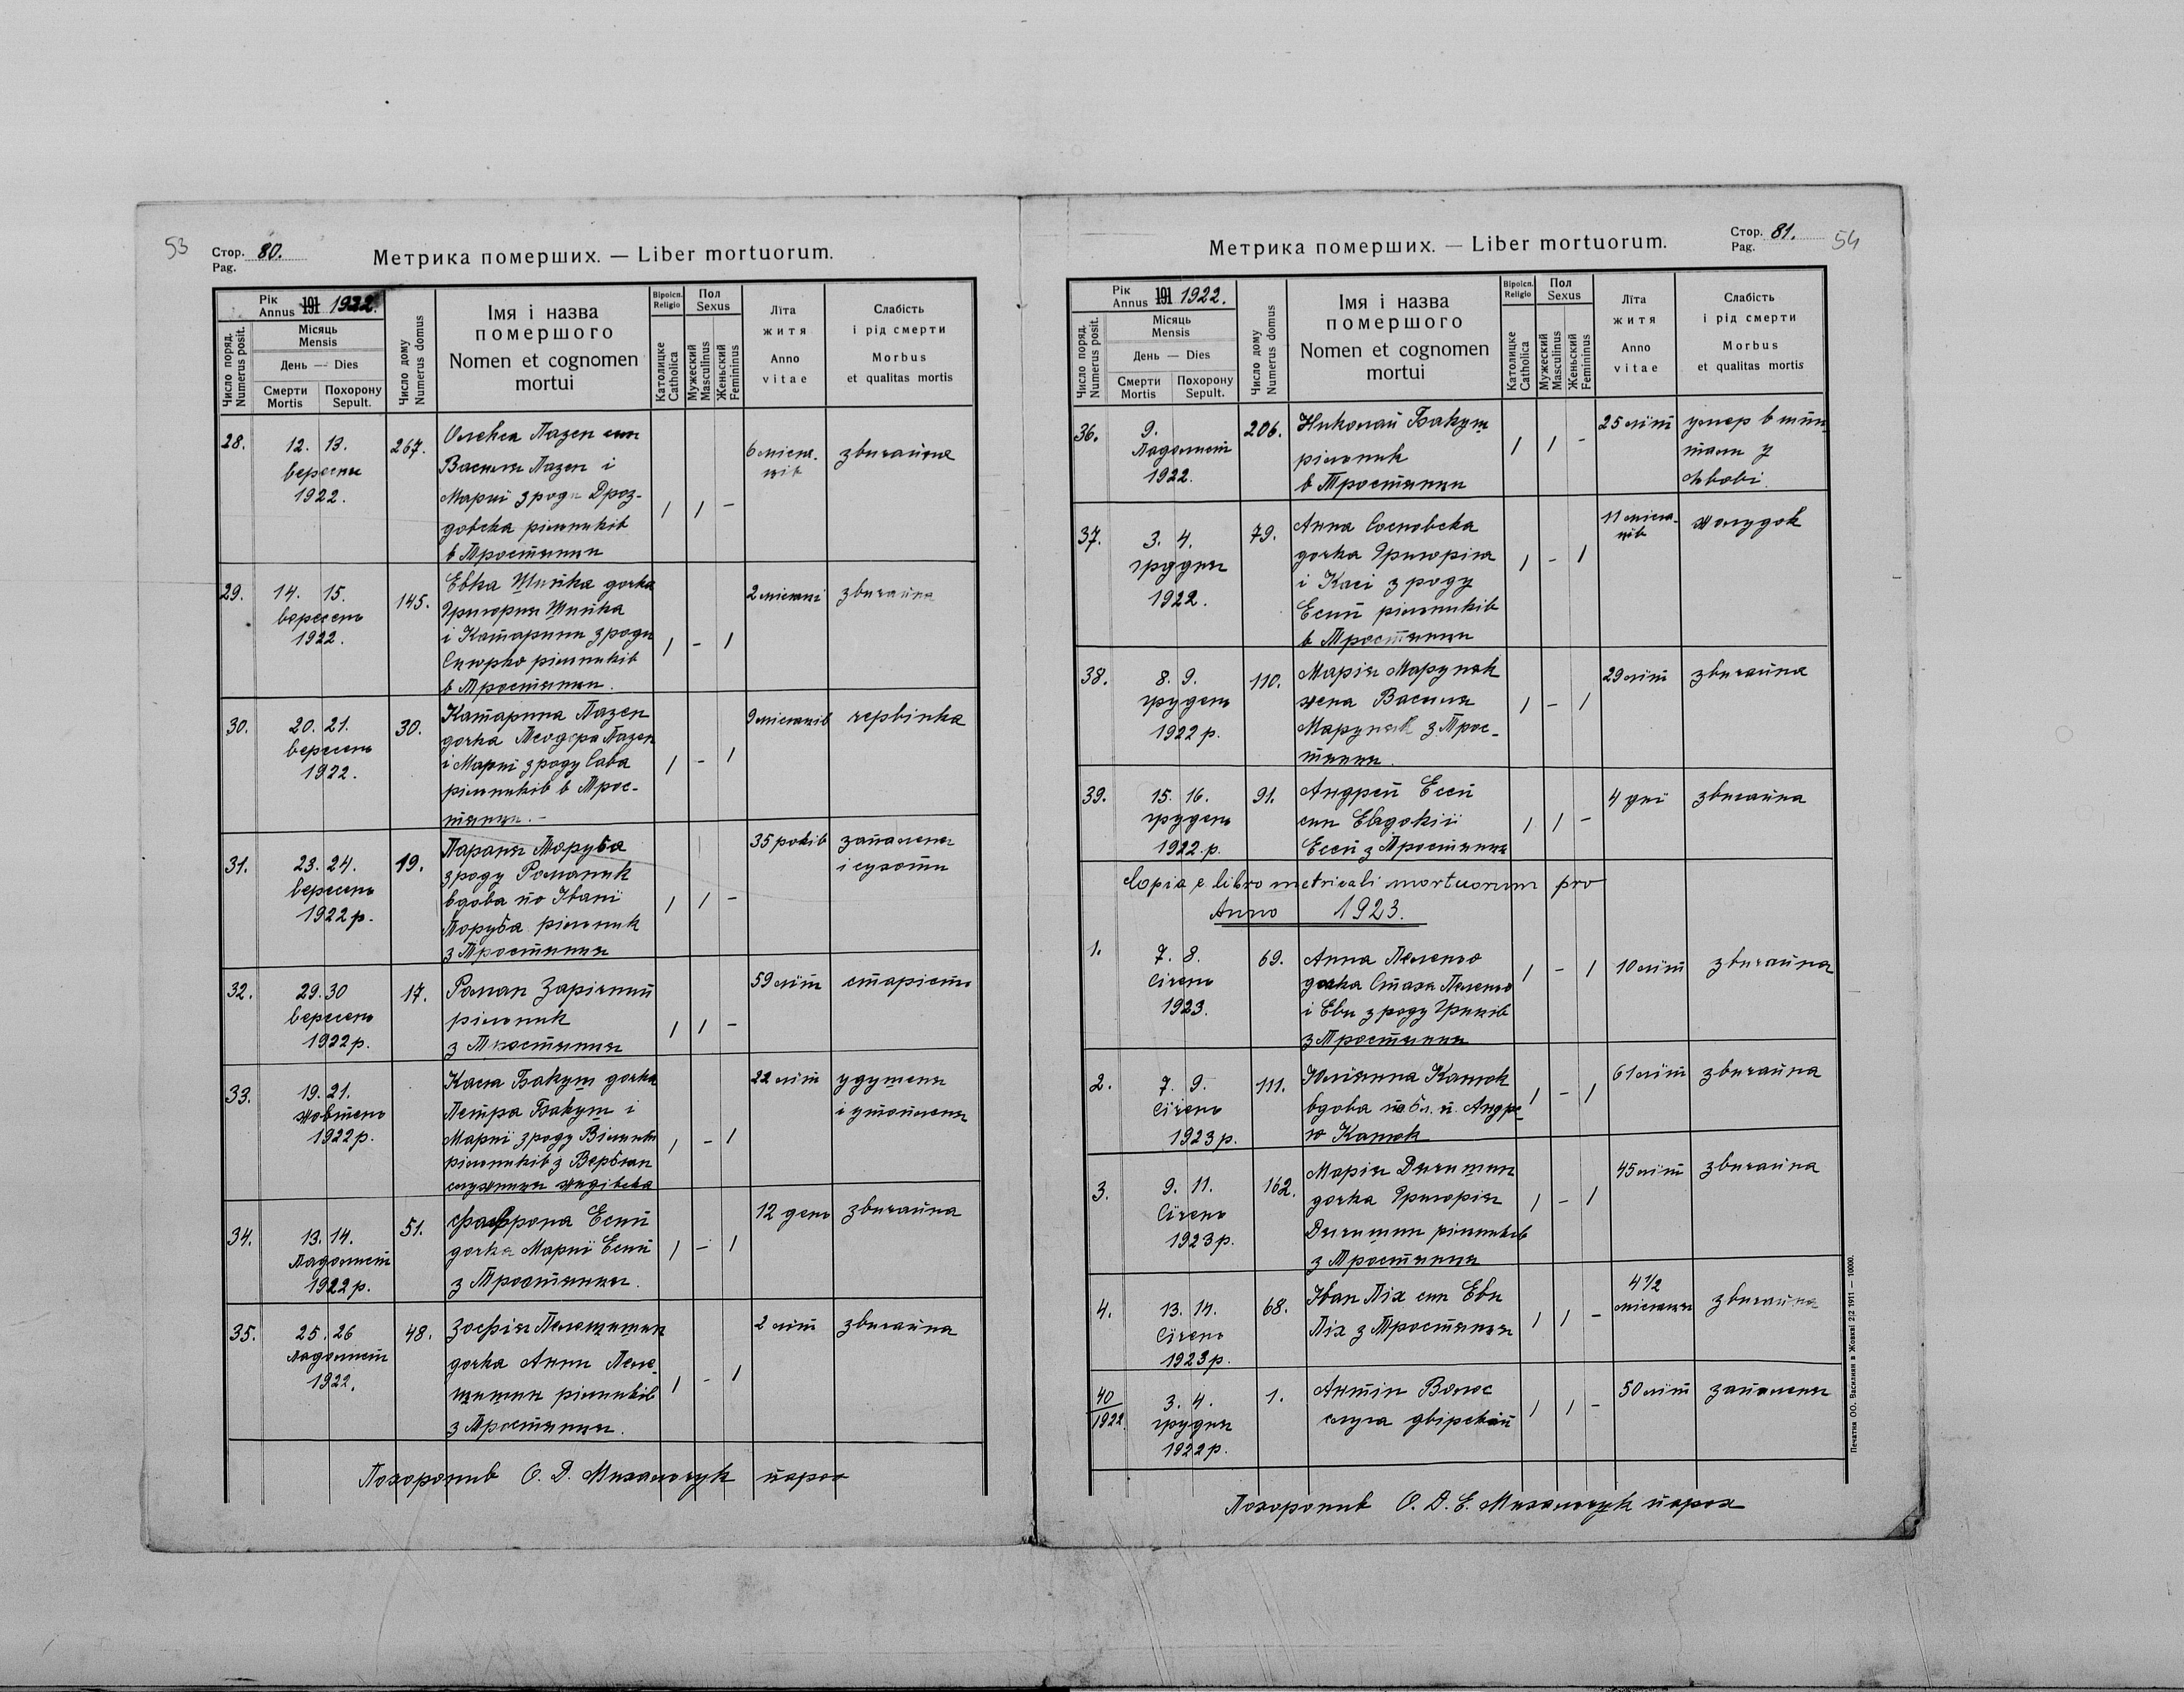 53
Стор. 80.
Pag.
Метрика померших. — Liber mortuorum.
Рік
Annus 191 1922.
Місяць
Mensis
День — Dies
Смерти
Mortis
Похорону
Sepult.
Число поряд.
Numerus posit.
Число дому
Numerus domus
Імя і назва
помершого
Nomen et cognomen
mortui
Віроісп.
Religio
Католицке
Catholica
Пол
Sexus
Мужеский
Masculinus
Женьский
Femininus
Літа
житя
Anno
vitae
Слабість
і рід смерти
Morbus
et qualitas mortis
28. 12. 13. 267. Олекса Пазен син 6 міся- звичайна
вересня Василя Пазен і ців
1922. Мариї з роду Дроз- / / –
довска рільників
в Тростянци
29. 14. 15. 145. Евка Шийка дочка 2 місяці звичайна
вересень Григория Шийка
1922. і Катарини з роду / – /
рільників
в Тростянци.
30. 20. 21. 30. Катарина Пазен 9 місяців червінка
вересень дочка Теодора Пазен
1922. і Мариї з роду Сава / – /
рільників в Трос-
тянци. –
31. 23. 24. 19. Параня Поруба 35 років запаленя
вересень з роду Романик і сухоти
1922 р. вдова по Івані / / –
Поруба рільник
з Тростянця
32. 29. 30 17. Роман Зарічний 59 літ старість
вересень рільник / / –
1922 р. з Тростянця
33. 19. 21. Кася Бакуш дочка 22 літ удушеня
жовтень Петра Бакуш і і утопленя
1922 р. Мариї з роду / – /
рільників з Вербян
служниця жидівска
34. 13. 14. 51. Фаврона Есип 12 день звичайна
Падолист дочка Мариї Есип / – /
1922 р. з Тростянця.
35. 25. 26 48. Зофія Пелещишин 2 літ звичайна
Падолист дочка Анни Пеле
1922. щишин рільників / – /
з Тростянця.
Похоронив О. Д. Михальчук парох
Стор. 81.
Pag.
54
Метрика померших. — Liber mortuorum.
Рік
Annus 191 1922.
Місяць
Mensis
День — Dies
Смерти
Mortis
Похорону
Sepult.
Число поряд.
Numerus posit.
Число дому
Numerus domus
Імя і назва
помершого
Nomen et cognomen
mortui
Віроісп.
Religio
Католицке
Catholica
Пол
Sexus
Мужеский
Masculinus
Женьский
Femininus
Літа
житя
Anno
vitae
Слабість
і рід смерти
Morbus
et qualitas mortis
36. 9. 206. Николай Бакуш 25 літ умер в шпи-
Падолист рільник / / – тали у
1922. в Тростянци Львові.
37. 3. 4. 79. Анна Сосновска 11 міся- жолудок
грудня дочка Григорія / – / ців
1922. і Касі з роду
Есип рільників
в Тростянци
38. 8. 9. 110. Марія Маруняк 29 літ звичайна
грудень жена Василя / – /
1922 р. Маруняк з Трос-
тянця.
39. 15. 16. 91. Андрей Есей 4 дні звичайна
грудень син Евдокії / / –
1922. р. Есей з Тростянця
Copia e libro metricali mortuorum pro
Anno 1923.
1. 7. 8. 69. Анна Пелепьо / – / 10 літ звичайна
Січень дочка Стаха Пелепьо
1923. і Еви з роду Гриців
з Тростянця
2. 7. 9. 111. Юліянна Канюк 61 літ звичайна
Січень вдова по бл. п. Андре / – /
1923 р. ю Канюк
3. 9. 11. 162. Марія Дячишин 45 літ звичайна
Січень дочка Григорія / – /
1923 р. Дячишин рільників
з Тростянця
4. 13. 14. 68. Іван Ліх син Еви 4 1/2 звичайна
Січень Ліх з Тростянця / / – місяця
1923 р.
40/1922. 3. 4. 1. Антін Волос 50 літ запаленя
грудня слуга двірский / / –
1922 р.
Похоронив О. Д. Е. Михальчук парох
Печатня ОО. Василиян в Жовкві 22|2 1911 — 10000.